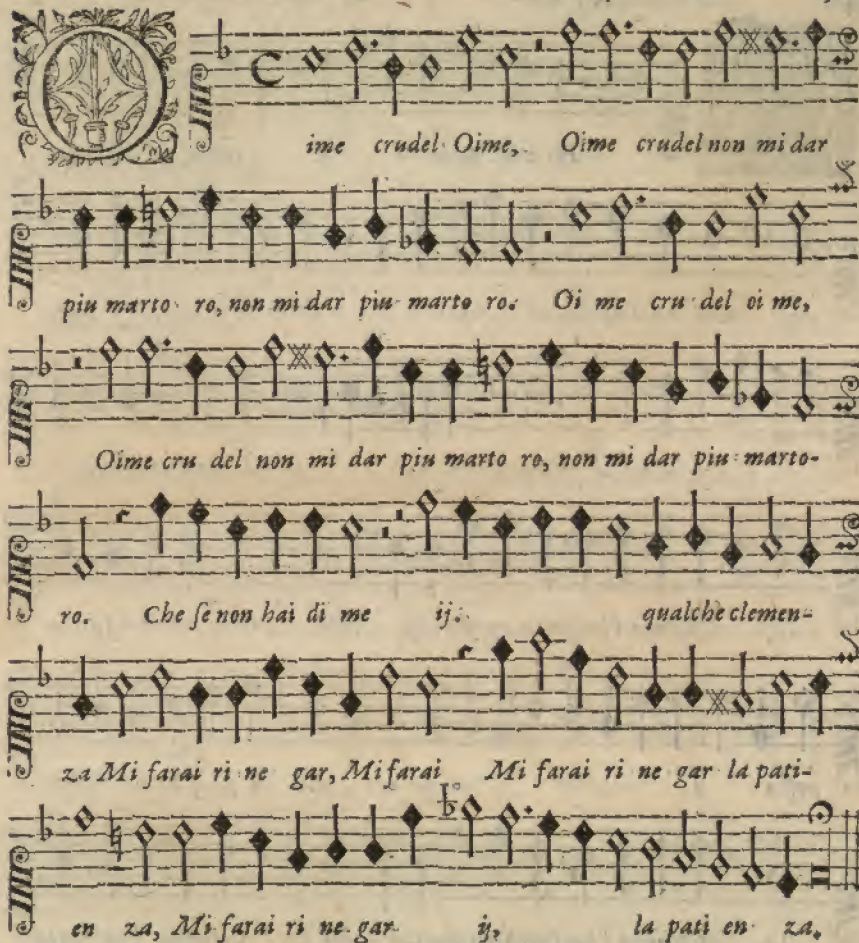 O ime crudel Oime, Oime crudel non mi dar
piu marto ro, non mi dar piu marto ro. Oi me cru del oi me,
Oime cru del non mi dar piu marto ro, non mi dar piu marto-
ro. Che ſe non hai di me ij. qualche clemen-
za Mi farai ri ne gar, Mi farai Mi farai ri ne gar la pati-
en za, Mi farai ri ne gar ij, la pati en za.